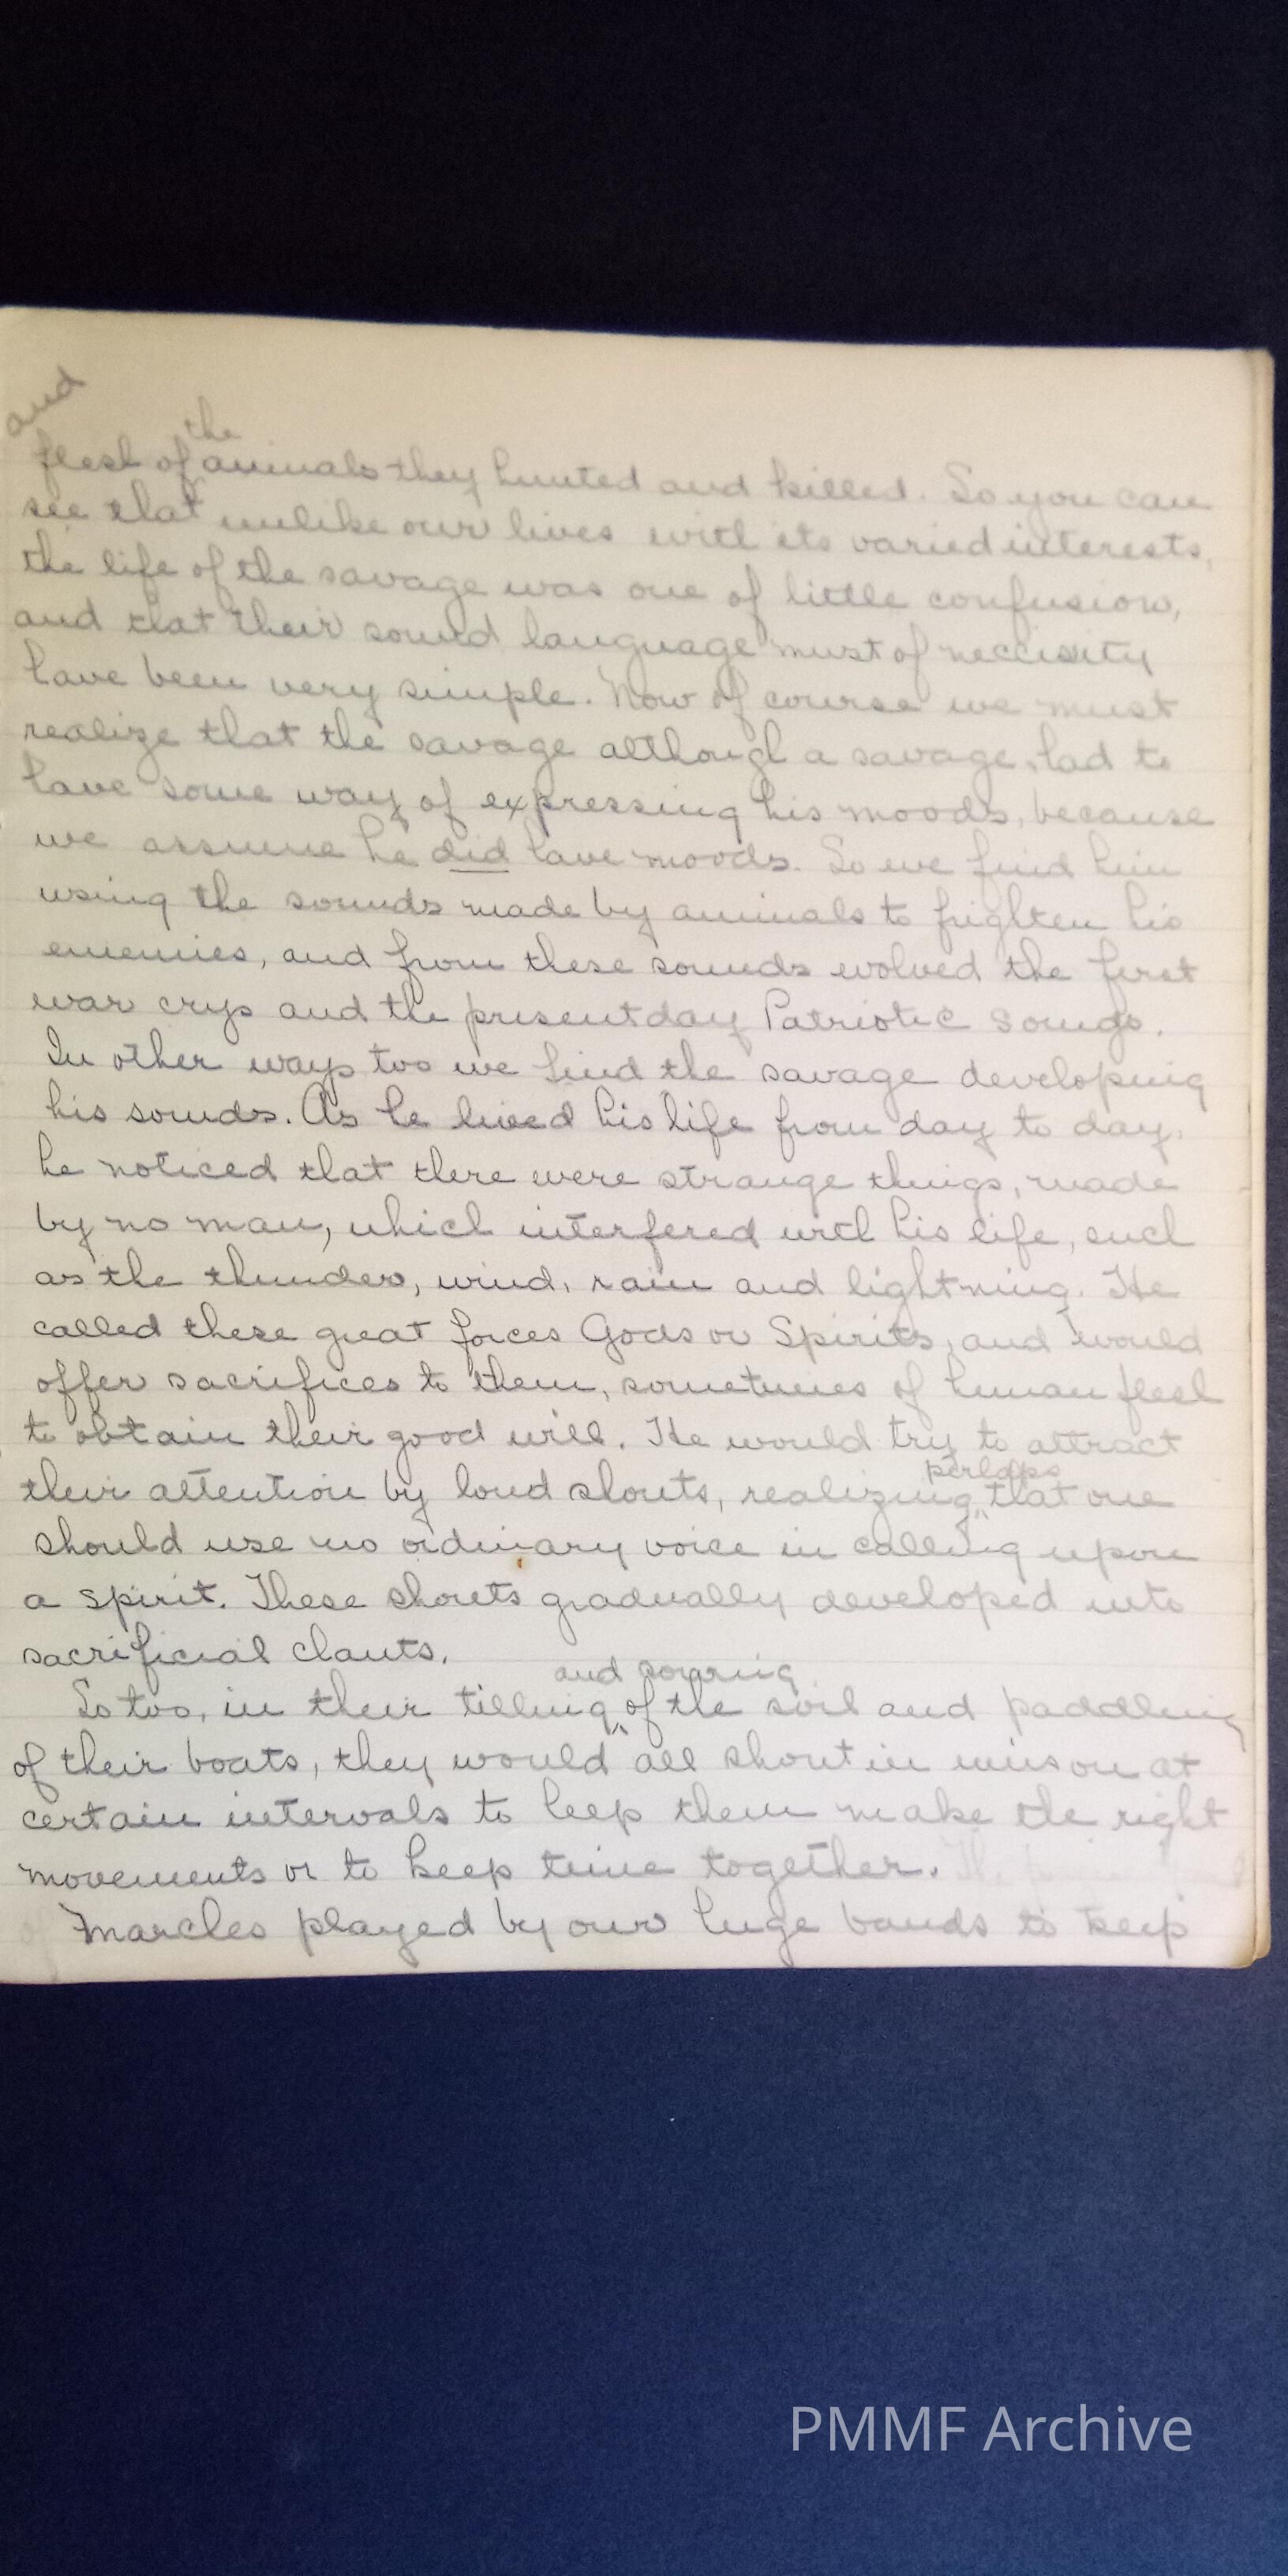 and
the
flesh of animals they hunted and killed. So you can
see that unlike our lives with its varied interests,
the life of the savage was one of little confusion,
and that their sound language must of neccissity
have been very simple. Now of course we must
realize that the savage although a savage, had to
have some way of expressing his moods, because
we assume he did have moods. So we find him
using the sounds made by animals to frighten his
enemies, and from these sounds evolved the first
war crys and the present day Patriotic songs.
In other ways too we find the savage developing
his sounds. As he lived his life from day to day,
he noticed that there were strange things, made
by no man, which interfered with his life, such
as the thunder, wind, rain and lightning. He
called these great forces Gods or Spirits, and would
offer sacrifices to them, sometimes of human flesh
to obtain their good will. He would try to attract
perhaps
their attention by loud shouts, realizing that one
should use no ordinary voice in calling upon
a spirit. These shouts gradually developed into
sacrificial chants.
and sowing
So too, in their tilling of the soil and paddling
of their boats, they would all shout in unison at
certain intervals to help them make the right
movements or to keep time together.
Marches played by our huge bands to keep
PMMF Archive